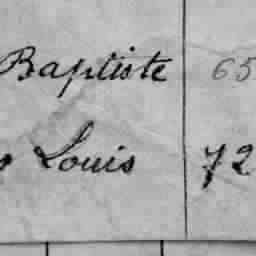 Baptiste 65
Louis 72